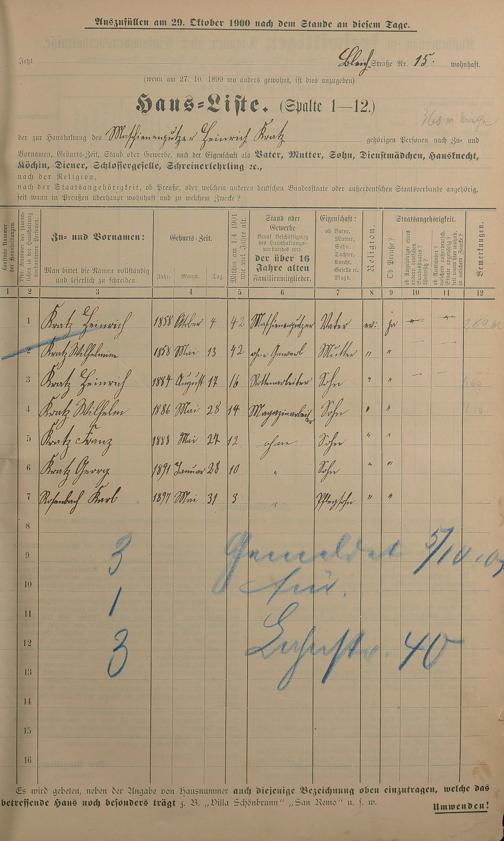 Auszufüllen am 29. Oktober 1900 nach dem Stande an diesem Tage.
Jetzt Bleich Straße Nr. 15. wohnhaft.
(wenn am 27. 10. 1899 wo anders gewohnt, ist dies anzugeben)
Haus-Liste. (Spalte 1—12.)
der zur Haushaltung des Maschienenputzer Heinrich Kratz gehörigen Personen nach Zu- und
Vornamen, Geburts-Zeit, Stand oder Gewerbe, nach der Eigenschaft als Vater, Mutter, Sohn, Dienstmädchen, Hausknecht,
Köchin, Diener, Schlossergeselle, Schreinerlehrling ꝛc.,
nach der Religion,
nach der Staatsangehörigkeit, ob Preuße, oder welchem anderen deutschen Bundesstaate oder außerdeutschen Staatsverbande angehörig,
seit wann in Preußen überhaupt wohnhaft und zu welchem Zwecke?
Zu- und Vornamen: Geburts-Zeit. Stand oder Gewerbe Eigenschaft: Religion. Staatsangehörigkeit. Bemerkungen.
Man bittet die Namen vollständig und leserlich zu schreiben.
Jahr. Monat. Tag.
der über 16 Jahre alten Familienmitglieder.
ob Vater, Mutter, Sohn, Tochter, Knecht, Geselle u. Magd.
Ob Preuße?
1 2 3 4 5 6 7 8 9 10 11 12
1 Kratz Heinrich 1858 4 42 Maschienenputzer Vater ev. ja
2 Kratz Wilhelmine 1858 Mai 13 42 ohne Gewerb Mutter " "
3 Kratz Heinrich 1884 August 17 16 Rottenarbeiter Sohn " "
4 Kratz Wilhelm 1886 Mai 28 14 Magazinarbeiter Sohn " "
5 Kratz Franz 1888 Mai 27 12 ohne Sohn " "
6 Kratz Georg 1891 Januar 28 10 " Sohn " "
7 Rosenbach Karl 1897 Mai 31 3 " Pflegsohn " "
8
9 3 Gemeldet 5/10.
10 für
11 1
12 Lahnstr. 40
13 3
14
15
16
Es wird gebeten, neben der Angabe von Hausnummer auch diejenige Bezeichnung oben einzutragen, welche das
betreffende Haus noch besonders trägt z. B. „Villa Schönbrunn" „San Remo" u. s. w.
Umwenden!